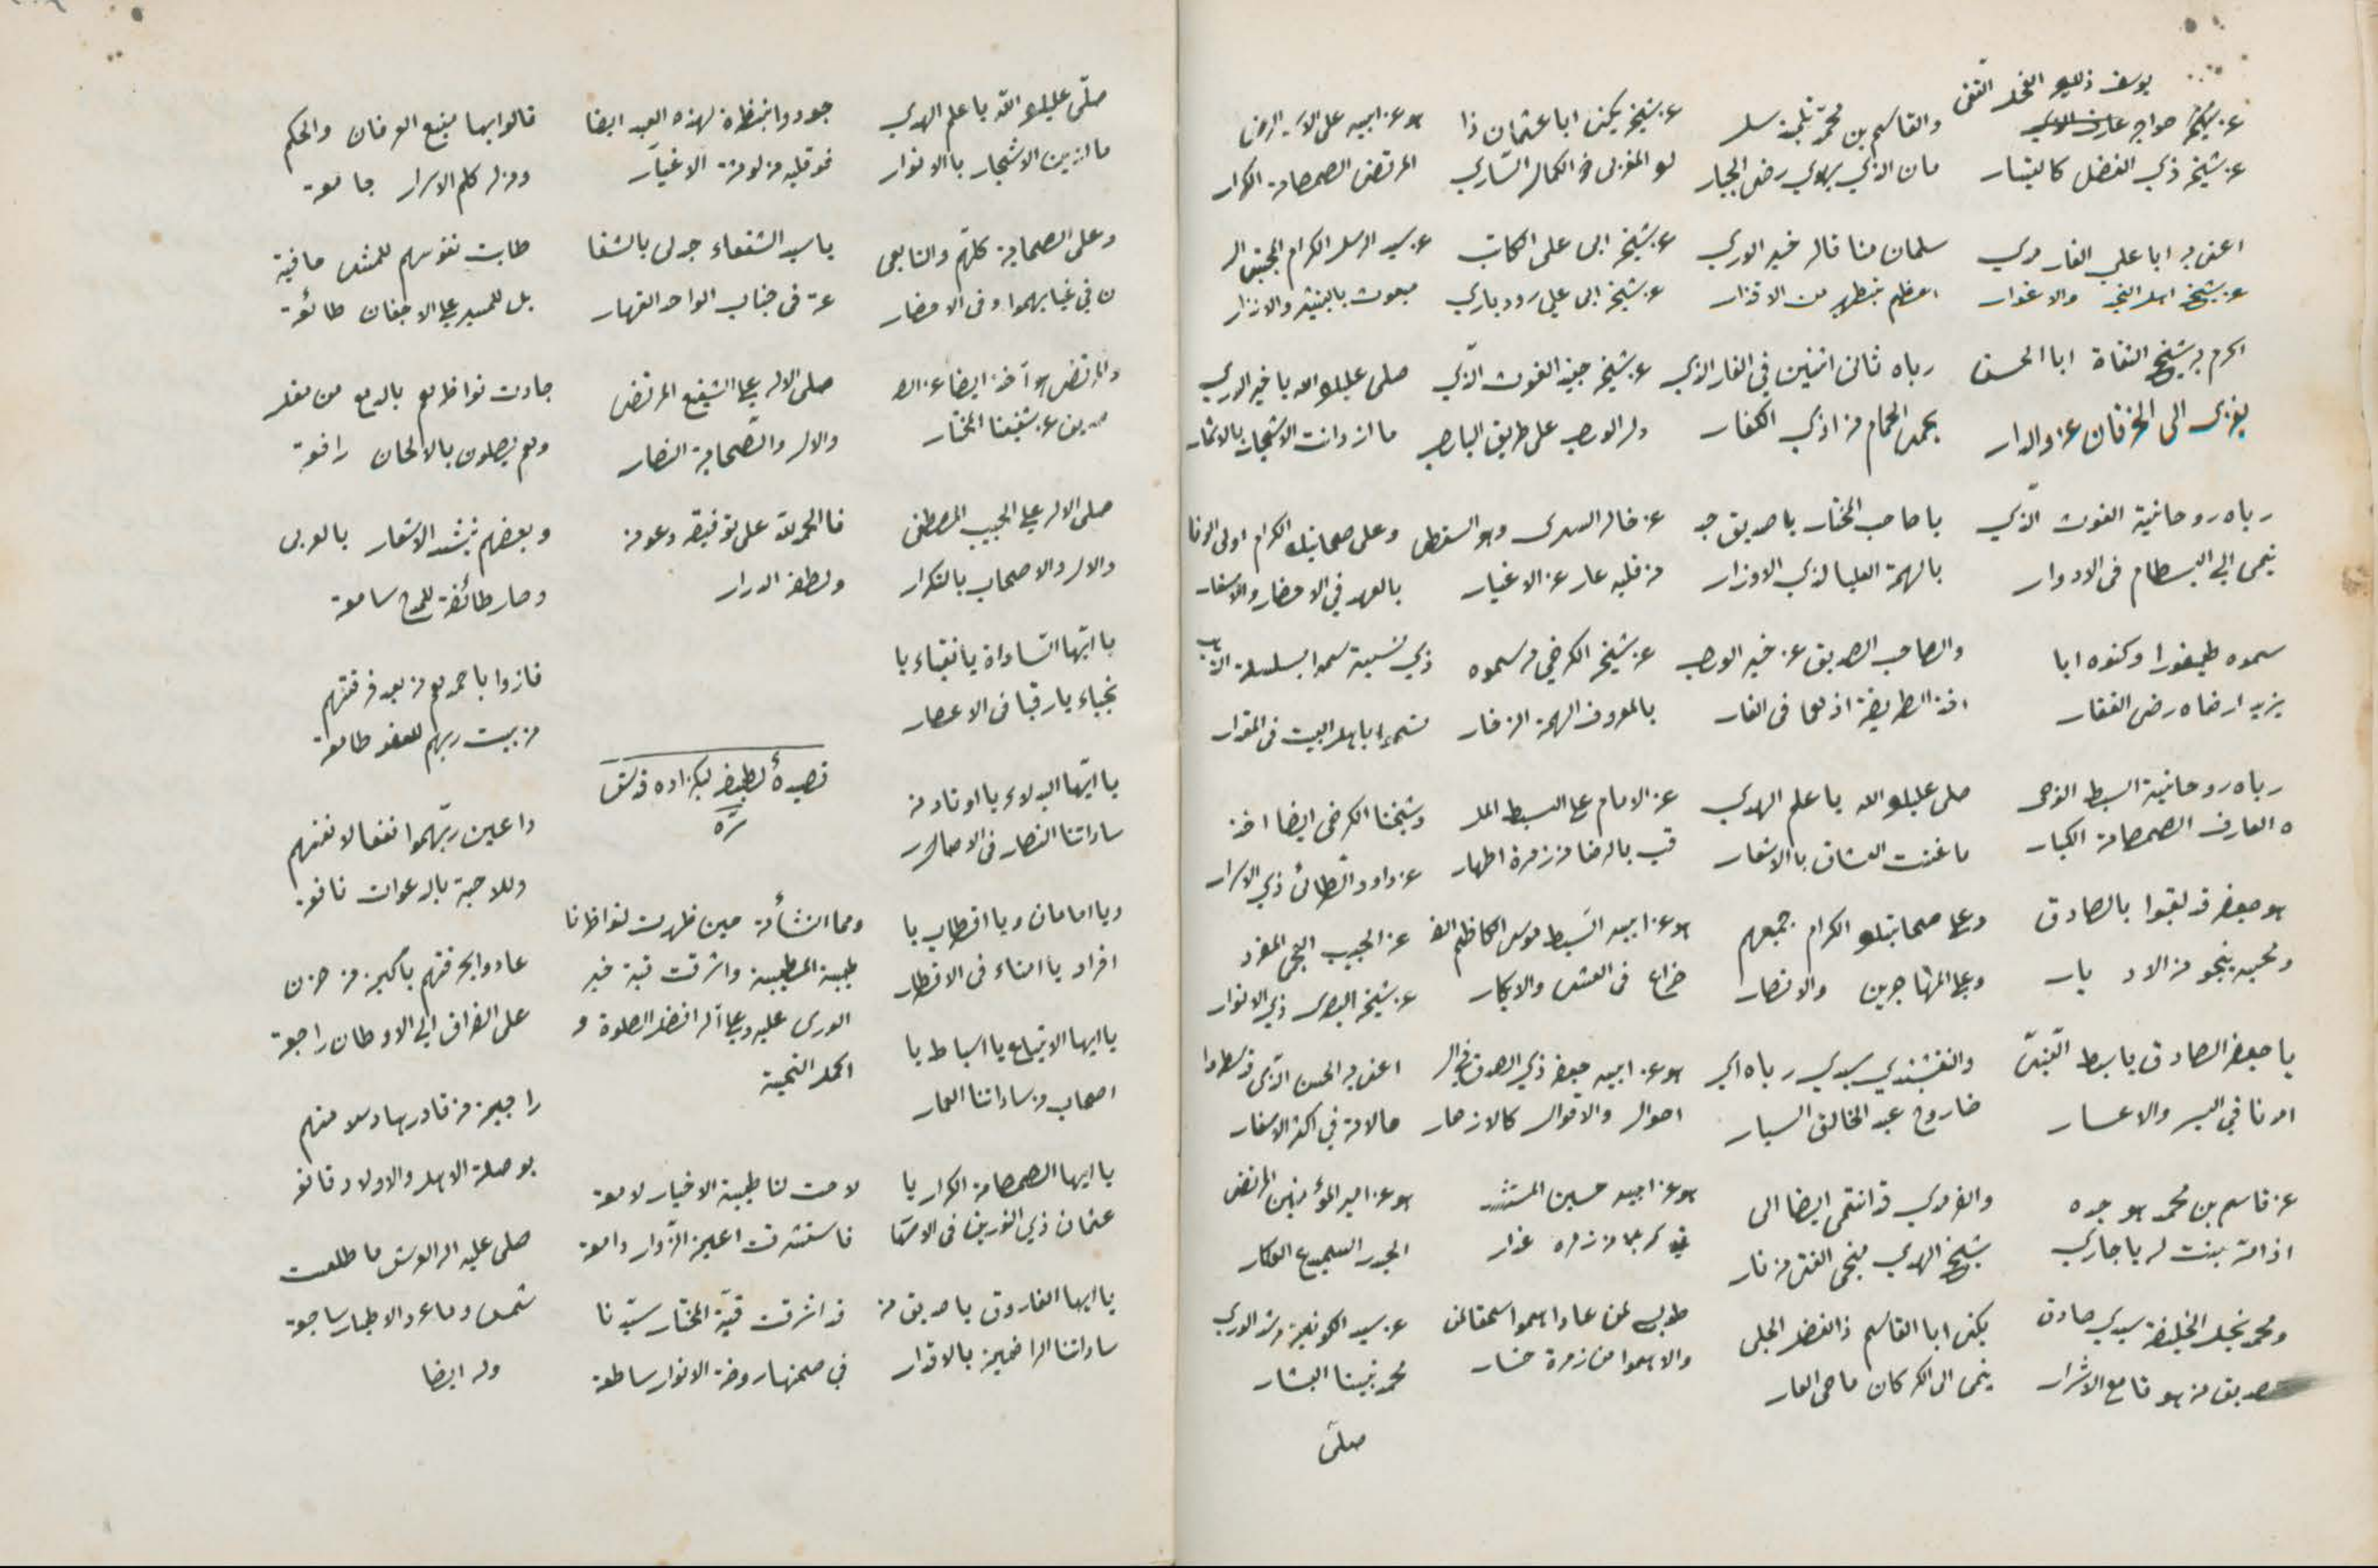 يوسف ذلك الفحل التقى
عن شيخه خواجه عارف
عن شيخه ذي الفضل كالتيار
اعني به ابا علي الفارمدي
عن شيخه اهل التقى والاغوار
اكرم به شيخ الثقاة ابا الحسن
يعزى الى الخرقان عز والدار
رباه روحانية الغوث الذي
ينمى الى البسطام فى الادوار
سموه طيفورا وكنوه ابا
يزيد ارضاه رضى الغفار
رباه روحانية السبط الفتى
ه العارف الصمصامة الكبار
هو جعفر قد لقبوا بالصادق
ومحبه ينجو من الاد بار
يا جعفر الصادق يا سبط النبيّ
امدنا في اليسر والاعسار
عن قاسم بن محمد هو جده
اذ امه بنت له يا جاري
ومحمد نجل الخليفة سيدي صادق
صديق من هو قامع الاشرار
والقاسم بن محمد تلميذ سلـ
مان الذي يهوي رضى الجبار
سلمان منا قاله خير الوري
اعظم بتطهير من الاقذار
رباه ثانى اثنين في الغار الذي
يحمى الحمام من اذي الكفار
يا صاحب المختار يا صديق جد
بالهمة العليا لذي الاوزار
والصاحب الصديق عن خير الورى
اخذ الطريقة اذ هما فى الغار
صلى عليك الله يا علم الهدي
ما غنت العشاق بالاشعار
وعلى صحابتك الكرام جميعهم
وعلى المهاجرين والانصار
والنقشبندي سيدي رباه اي
ضا روح عبد الخالق السيار
والفارمدي قد انتمى ايضا الى
شيخ الهدي منجى الفتى من نار
يكنى ابا القاسم ذا الفضل الجلى
ينمى الى الكركان ماحى العار
عن شيخه يكنى ابا عثمان ذا
لو المغربى ذو الكمال الساري
عن شيخه ابى على الكاتب
عن شيخه ابى على رودباري
عن شيخه جنيد الغوث الذي
دل الورى على طريق الباري
عن خاله السرى وهو السقطى
من قلبه عار عن الاغيار
عن شيخه الكرخي قد سموه
بالمعروف الهمة الزخار
عن الامام على السبط الملـ
قب بالرضا من زمرة اطهار
هو عن ابيه السبط موسى الكاظم الضـ
راع فى العشى والابكار
هو عن ابيه جعفر ذي الصدق في الـ
احوال والاقوال كالازهار
هو عن ابيه حسين
طوبى لمن عادا همو اسحقا لمن
والاهموا من زمرة خسار
هو عن ابيه على الاسد الرضى
المرتضى الصمصامة الكرار
عن سيد الرسل الكرام المجتبى الـ
مبعوث بالتبشير والانذار
صلى عليك الله يا خير الوري
ما ازدانت الاشجار بالاثمار
وعلى صحابتك الكرام اولى الوفا
بالعهد في الاحضار والاسفار
ذي نسبة سمها بسلسلة الذهب
تنمى ابا باهل البيت فى المقدار
وشيخنا الكرخى ايضا اخذ
عن داود الطائى ذي الاسرار
عن الحبيب العجمى المفرد
عن شيخه البصرى ذي الانوار
اعنى به الحسن الذي قد سطروا
حالاته في اكثر الاسفار
هو عن امير المؤمنين المرتضى
الحيدر السميدع العكار
عن سيد الكونين مرشد الوري
محمد نبينا البشار
صلى
صلّى عليك الله يا علم الهدي
ما ازين الاشجار بالانوار
وعلى الصحابة كلهم والتابعى
ن في غيابهموا وفى الاحضار
والمرتضى هو آخذ ايضا عن الصـ
صديق عن شفيعنا المختار
صلى الاله على الحبيب المصطفى
والال والاصحاب بالتكرار
يا ايّها السّاداة يا نقباء يا
نجباء يا رقبا فى الاعصار
يا ايّها البدلاء يا اوتاد من
ساداتنا النصار فى الاصار
ويا امامان ويا اقطاب يا
افراد يا امناء فى الاقطار
يا ايها الاتباع يا اسباط يا
اصحاب من ساداتنا العمار
يا ايها الصمصامة الكرار يا
عثمان ذي النورين فى الاسما
يا ايها الفاروق يا صديق من
ساداتنا الراضين بالاقدار
جودوا بنظرة لهذه العبد ايضا
فو قلبه من لوثة الاغيار
يا سيد الشفعاء جد لى بالشفا
عة فى جناب الواحد القهار
صلى الاله على الشفيع المرتضى
والال والصّحابة النصار
فالحمد لله على توفيقه وعونه
ولطفه الدرار
قصيدة لطيفه لبكزاده قدس
سره
ومما انشأته حين ظهرت لنواظرنا
طيبة المطيبة واشرقت قبة خير
الورى عليه وعلى آله افضل الصلوة و
اكمل التحية
لاحت لنا طيبة الاخيار لامعة
فاستشرقت اعين الزوار دامعة
قد اشرقت قبّة المختار سيّدنا
في صحنها روضة الانوار ساطعة
قالوا بها منبع العرفان والحكم
ومنزل كلم الاسرار جامعة
طابت نفوسهم للمشى حافية
بل للمسير على الاجفان طائعة
جادت نواظرهم بالدمع من مقل
وهم يصلون بالالحان رافعة
وبعضهم ينشد الاشعار بالعربى
وصار طائفة للمدح سامعة
فازوا باحمدهم من بعد فرقتهم
من بيت ربهم للعفو طامعة
داعين ربّهموا نفعا لانفسهم
وللاحبة بالدعوات نافعة
عادوا بحرقتهم باكين من حزن
على الفراق الى الاوطان راجعة
راجين من قادر
بوصلة الاهل والاولاد قانعة
صلى عليه اله العرش ما طلعت
شمس وما غرد الاطيار ساجعة
وله ايضا